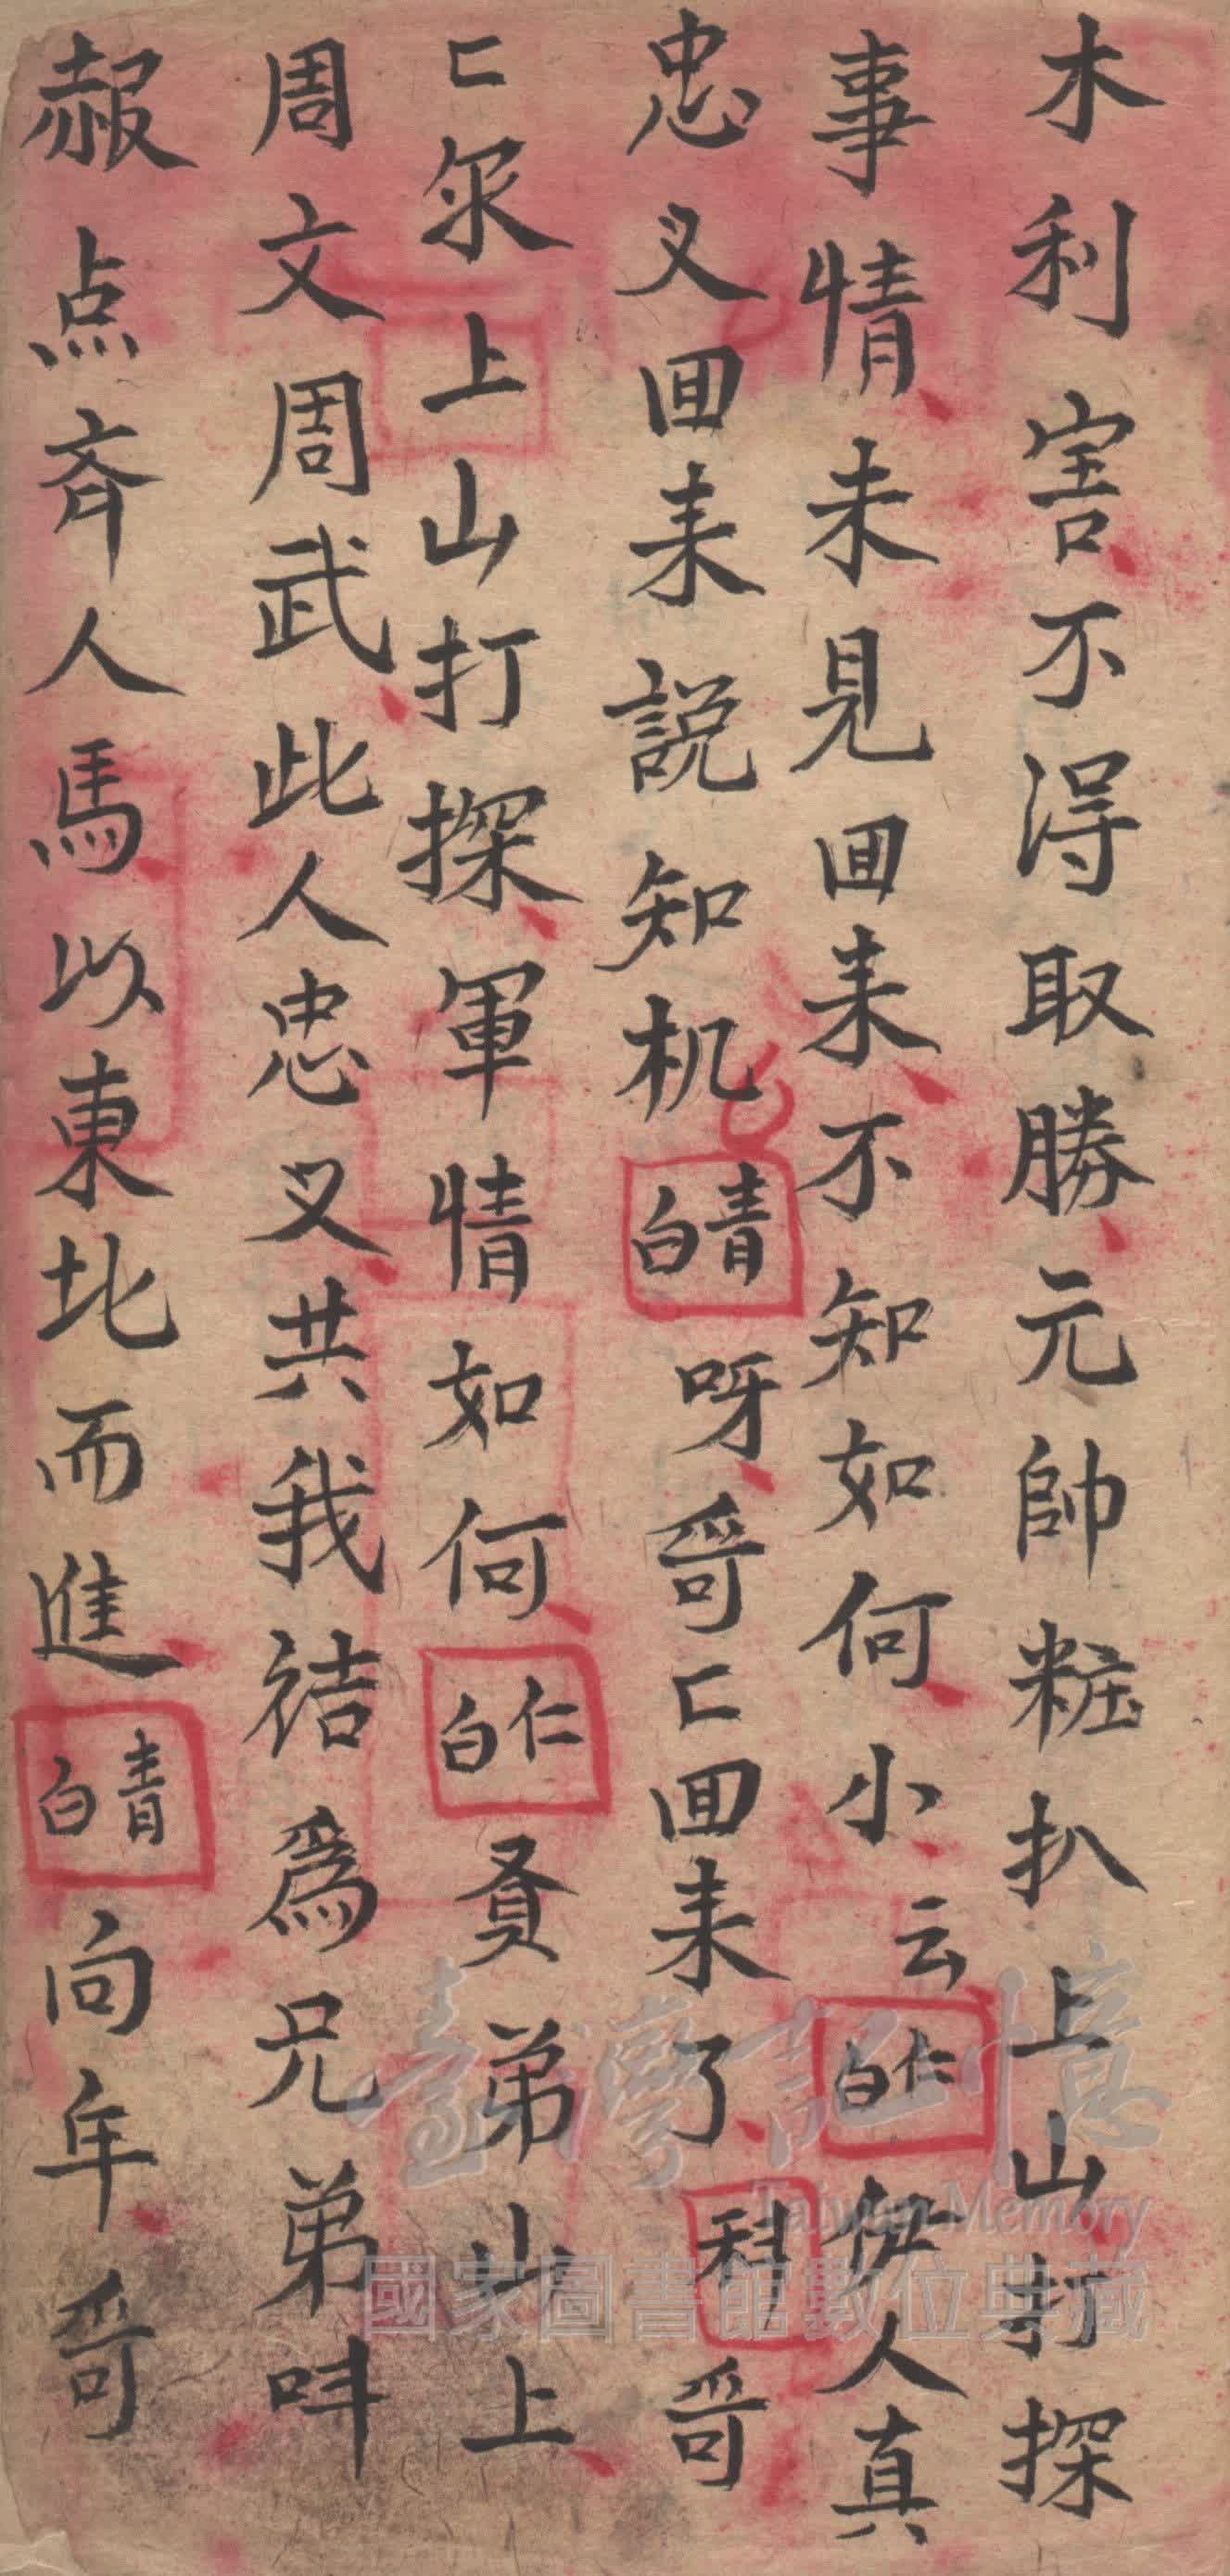 木利害不淂取勝元帥粧扒上山打探
事情未見囬来不知如何小云仁白伊人真
忠义囬来説知机青白呀哥匸囬来了科哥
匸尔上山打探軍情如何仁白賢弟山上
周文周武此人忠义共我結為兄弟叫
赧点斉人馬以東北而進青白向年哥
臺灣記憶
Taiwan Memory
國家圖書館數位典藏